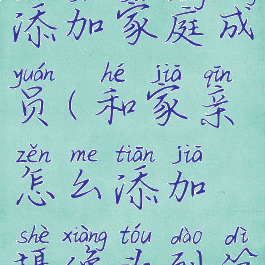 添加家庭成
yuán hé jiā qīn
员(和家亲
zěn me tiān jiā
怎么添加
shè xiàng tóu dào dì
摄像头到给